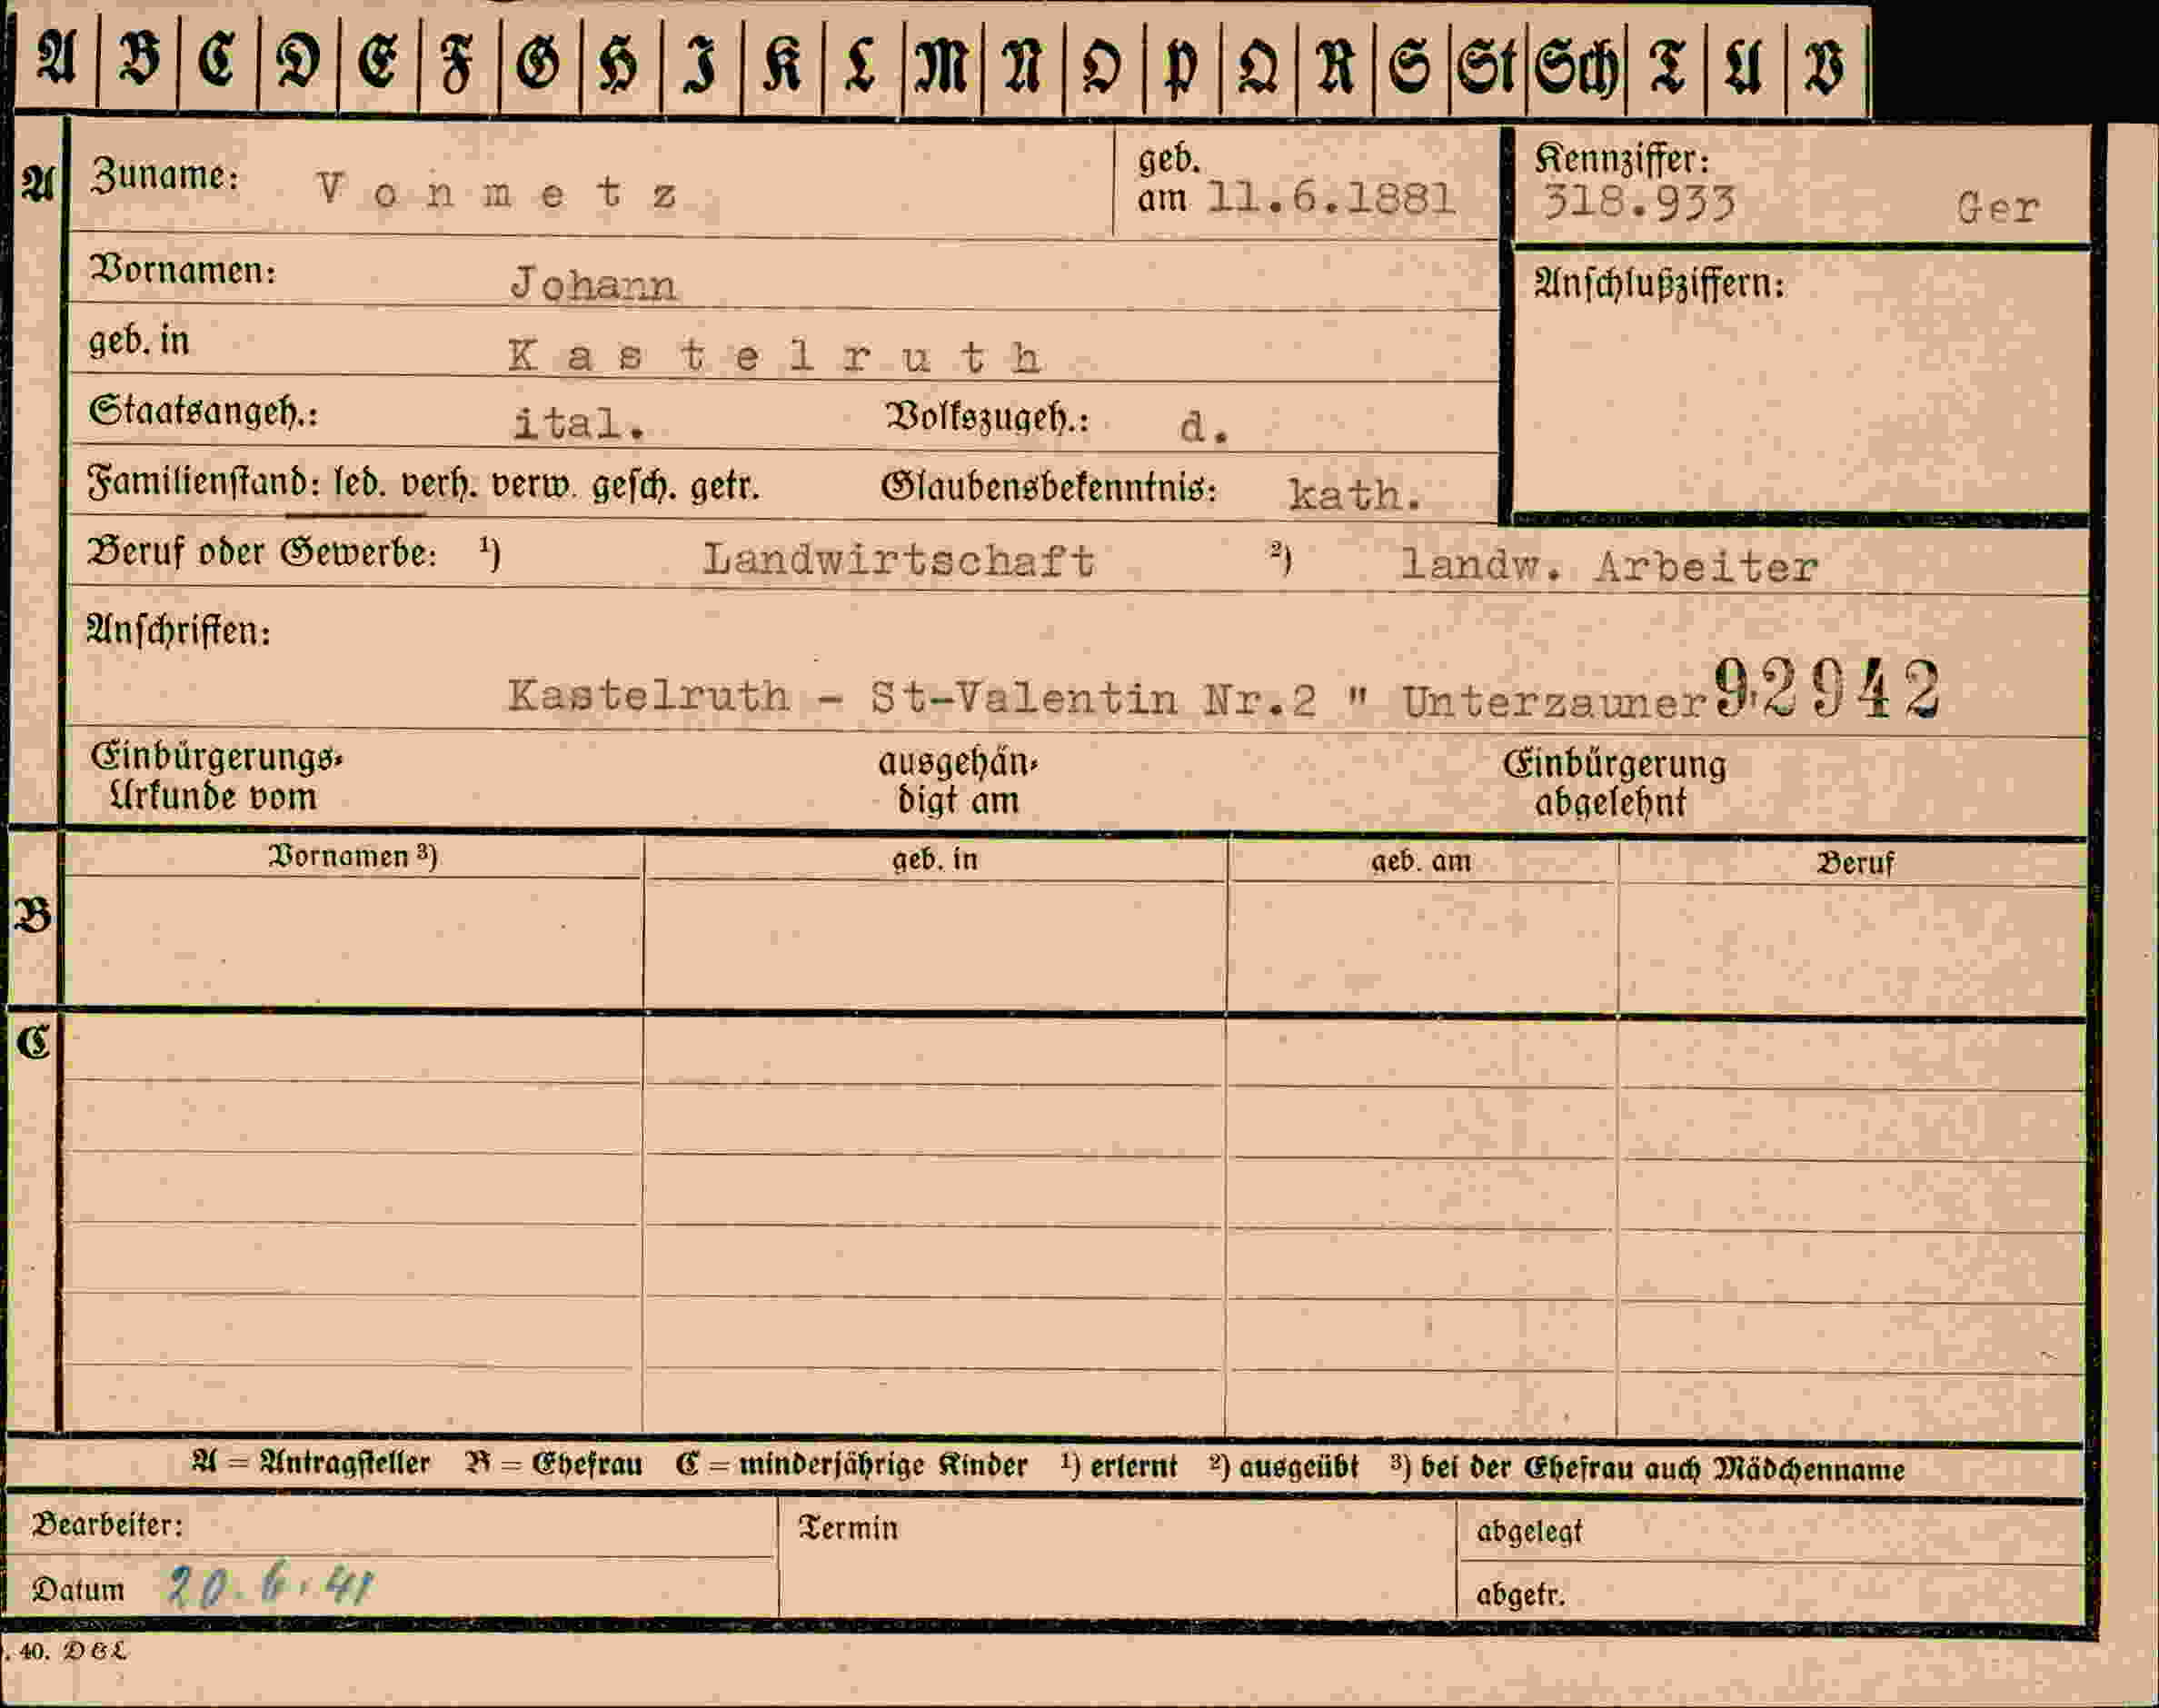 A B C D E F G H I K L M N O P Q R S St Sch T U V
A Zuname: Vonmetz geb. am 11.6.1881 Kennziffer: 318.933 Ger
Vornamen: Johann Anschlußziffern:
geb. in Kastelruth
Staatsangeh.: ital. Volkszugeh.: d.
Familienstand: led. verh. verw. gesch. getr. Glaubensbekenntnis: kath.
Beruf oder Gewerbe: 1) Landwirtschaft 2) landw. Arbeiter
Anschriften:
Kastelruth - St-Valentin Nr.2 " Unterzauner 92942
Einbürgerungs- ausgehän- Einbürgerung
Urkunde vom digt am abgelehnt
Vornamen 3) geb. in geb. am Beruf
B
C
A = Antragsteller B = Ehefrau C = minderjährige Kinder 1) erlernt 2) ausgeübt 3) bei der Ehefrau auch Mädchenname
Bearbeiter: Termin abgelegt
Datum 20.6.41 abgetr.
. 40. DGL